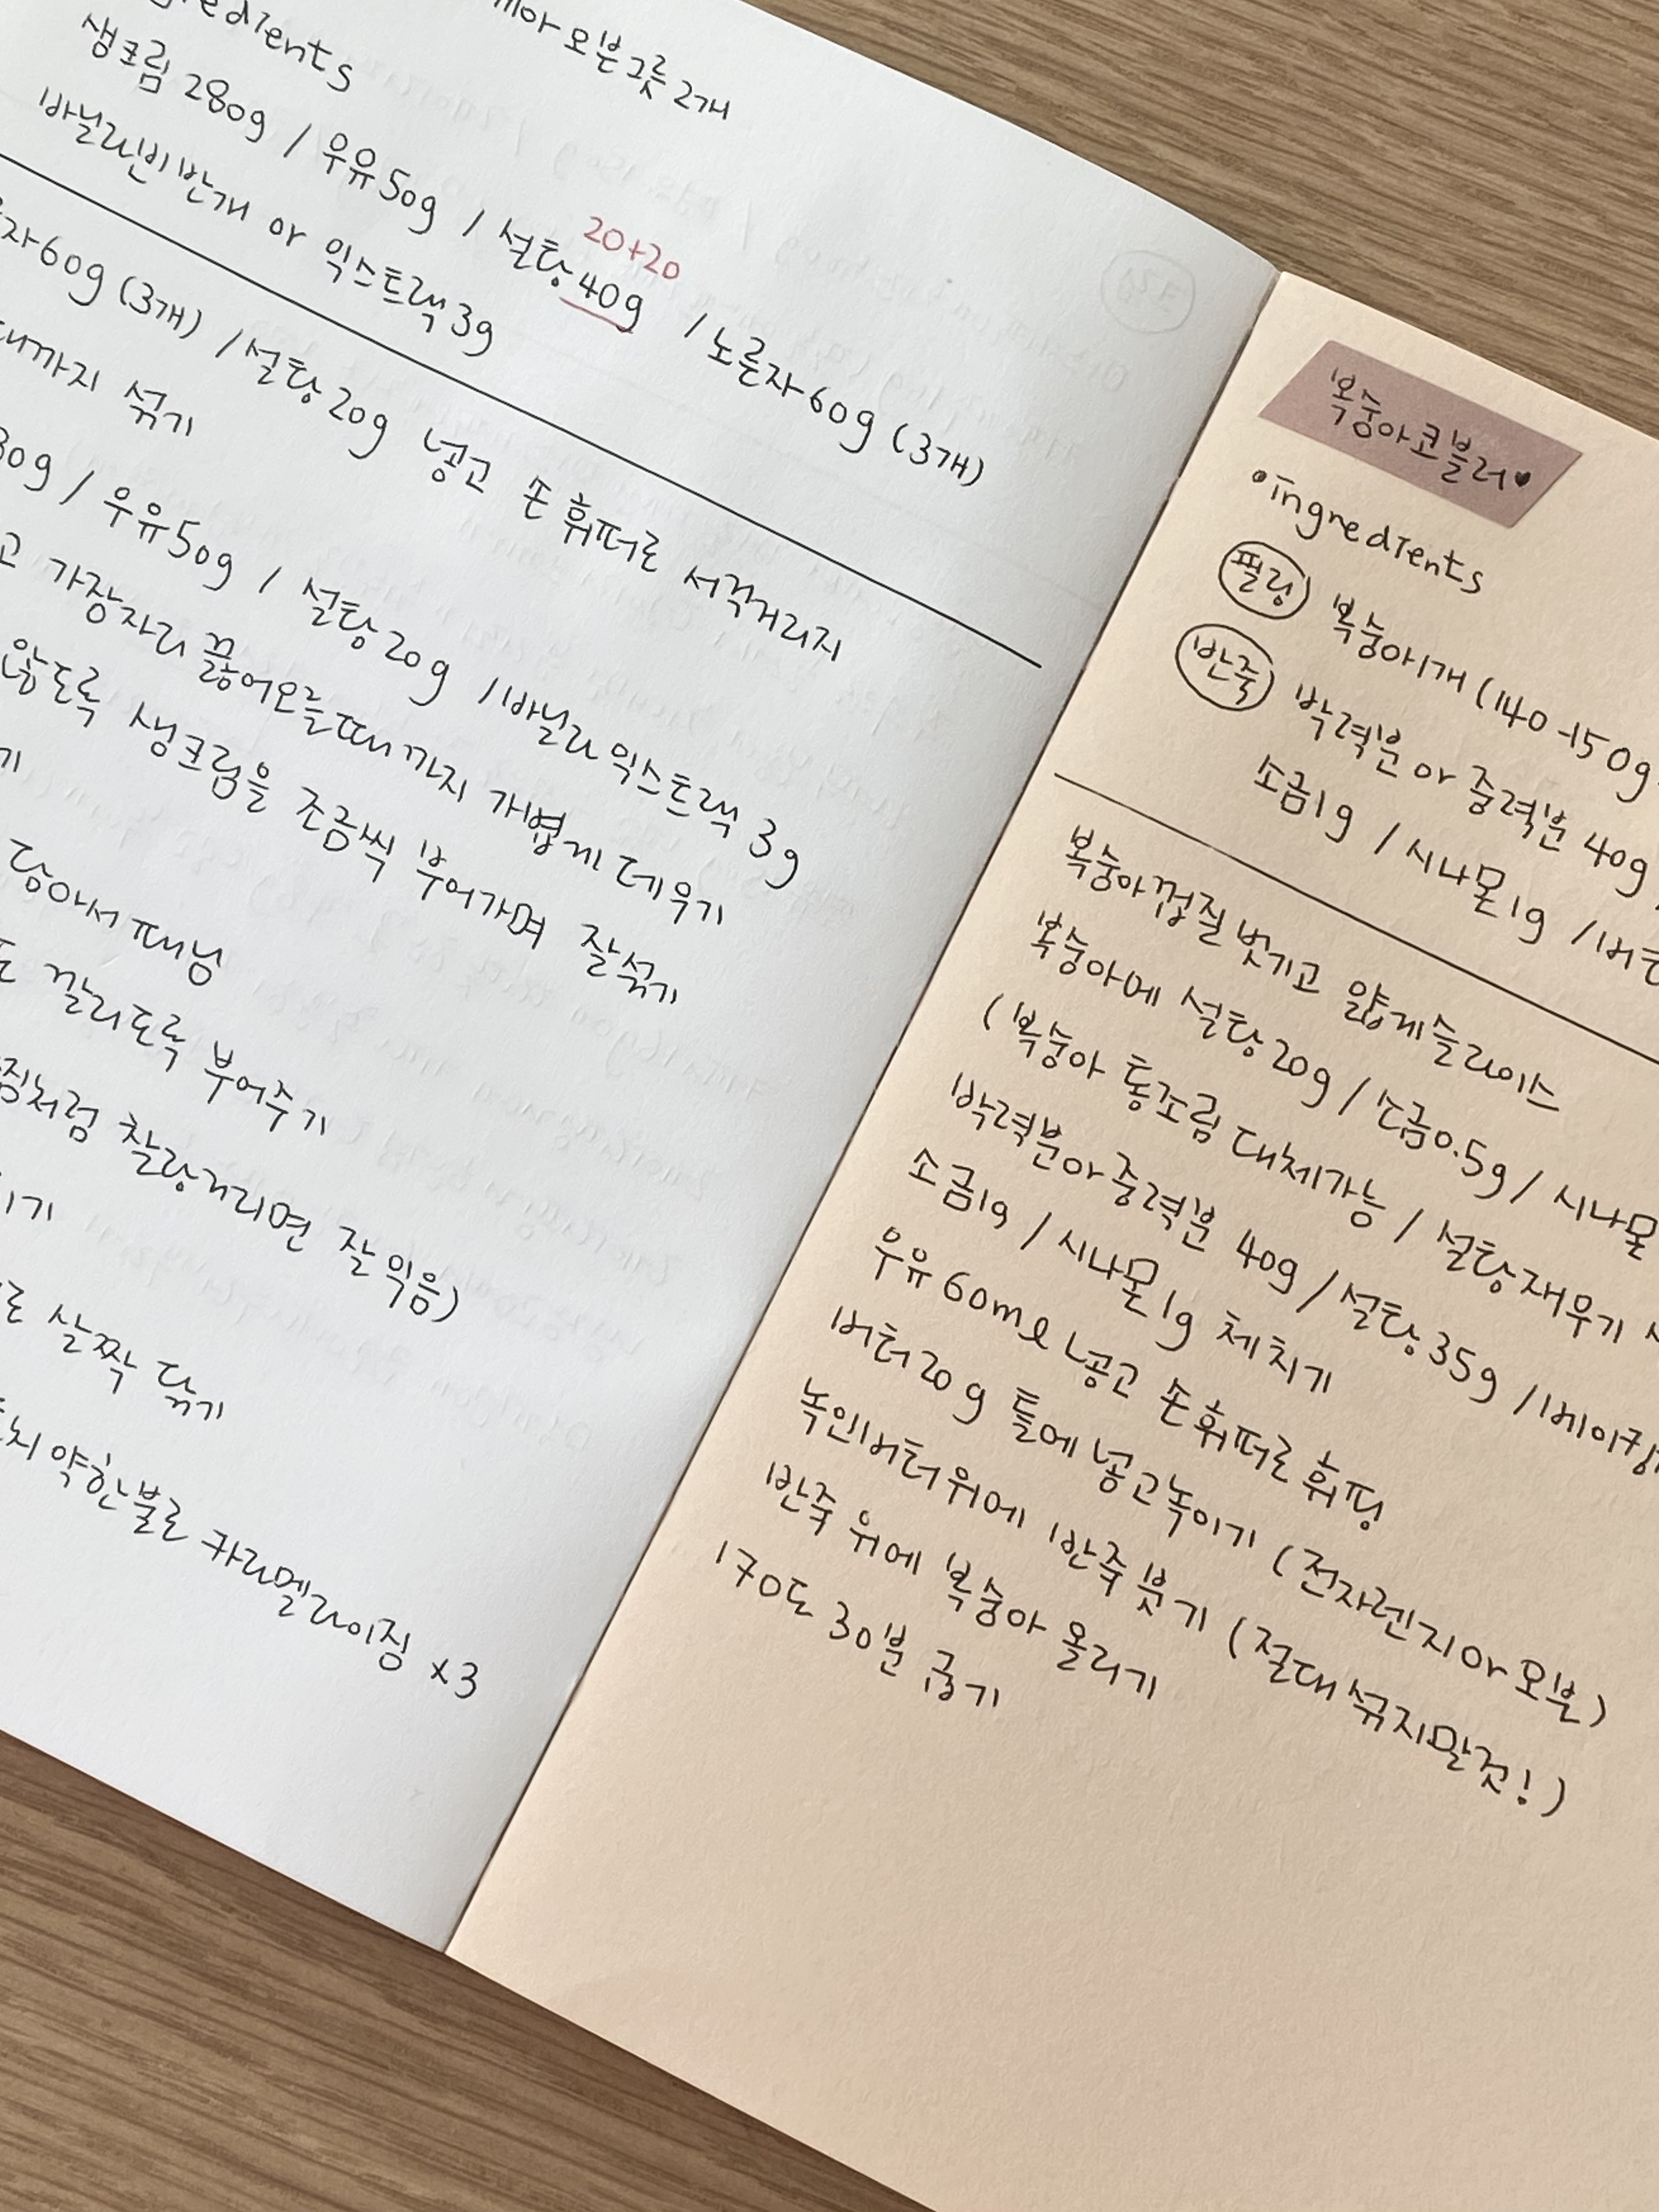 오븐그릇 2개
ingredients
생크림 280g / 우유 50g / 설탕 40g / 노른자 60g (3개)
20+20
바닐라빈 반개 or 익스트랙 3g
60g (3개) / 설탕 20g 넣고 손 휘퍼로 서걱거리지
섞기
우유 50g / 설탕 20g / 바닐라 익스트랙 3g
가장자리 끓어오를때 까지 개볍게 데우기
않도록 생크림을 조금씩 부어가며 잘섞기
담아서 때님
깔리도록 부어주기
찰랑거리면 잘 익음)
살짝 닦기
약한불로 카라멜라이징 x3
복숭아코블러♥
•ingredients
필링 복숭아 1개 (140-150g
반죽 박력분 or 중력분 40g
소금 1g / 시나몬 1g /
복숭아껍질 벗기고 얇게슬라이스
복숭아에 설탕 20g / 소금 0.5g / 시나몬
(복숭아 통조림 대체가능 / 설탕재우기
박력분 or 중력분 40g / 설탕 35g / 베이킹
소금 1g / 시나몬 1g 체치기
우유 60ml 넣고 손휘퍼로 휘핑
버터 20g 틀에 넣고녹이기 (전자렌지 or 오븐)
녹인버터위에 반죽 붓기 (절대 섞지말것!)
반죽 위에 복숭아 올리기
170도 30분 굽기